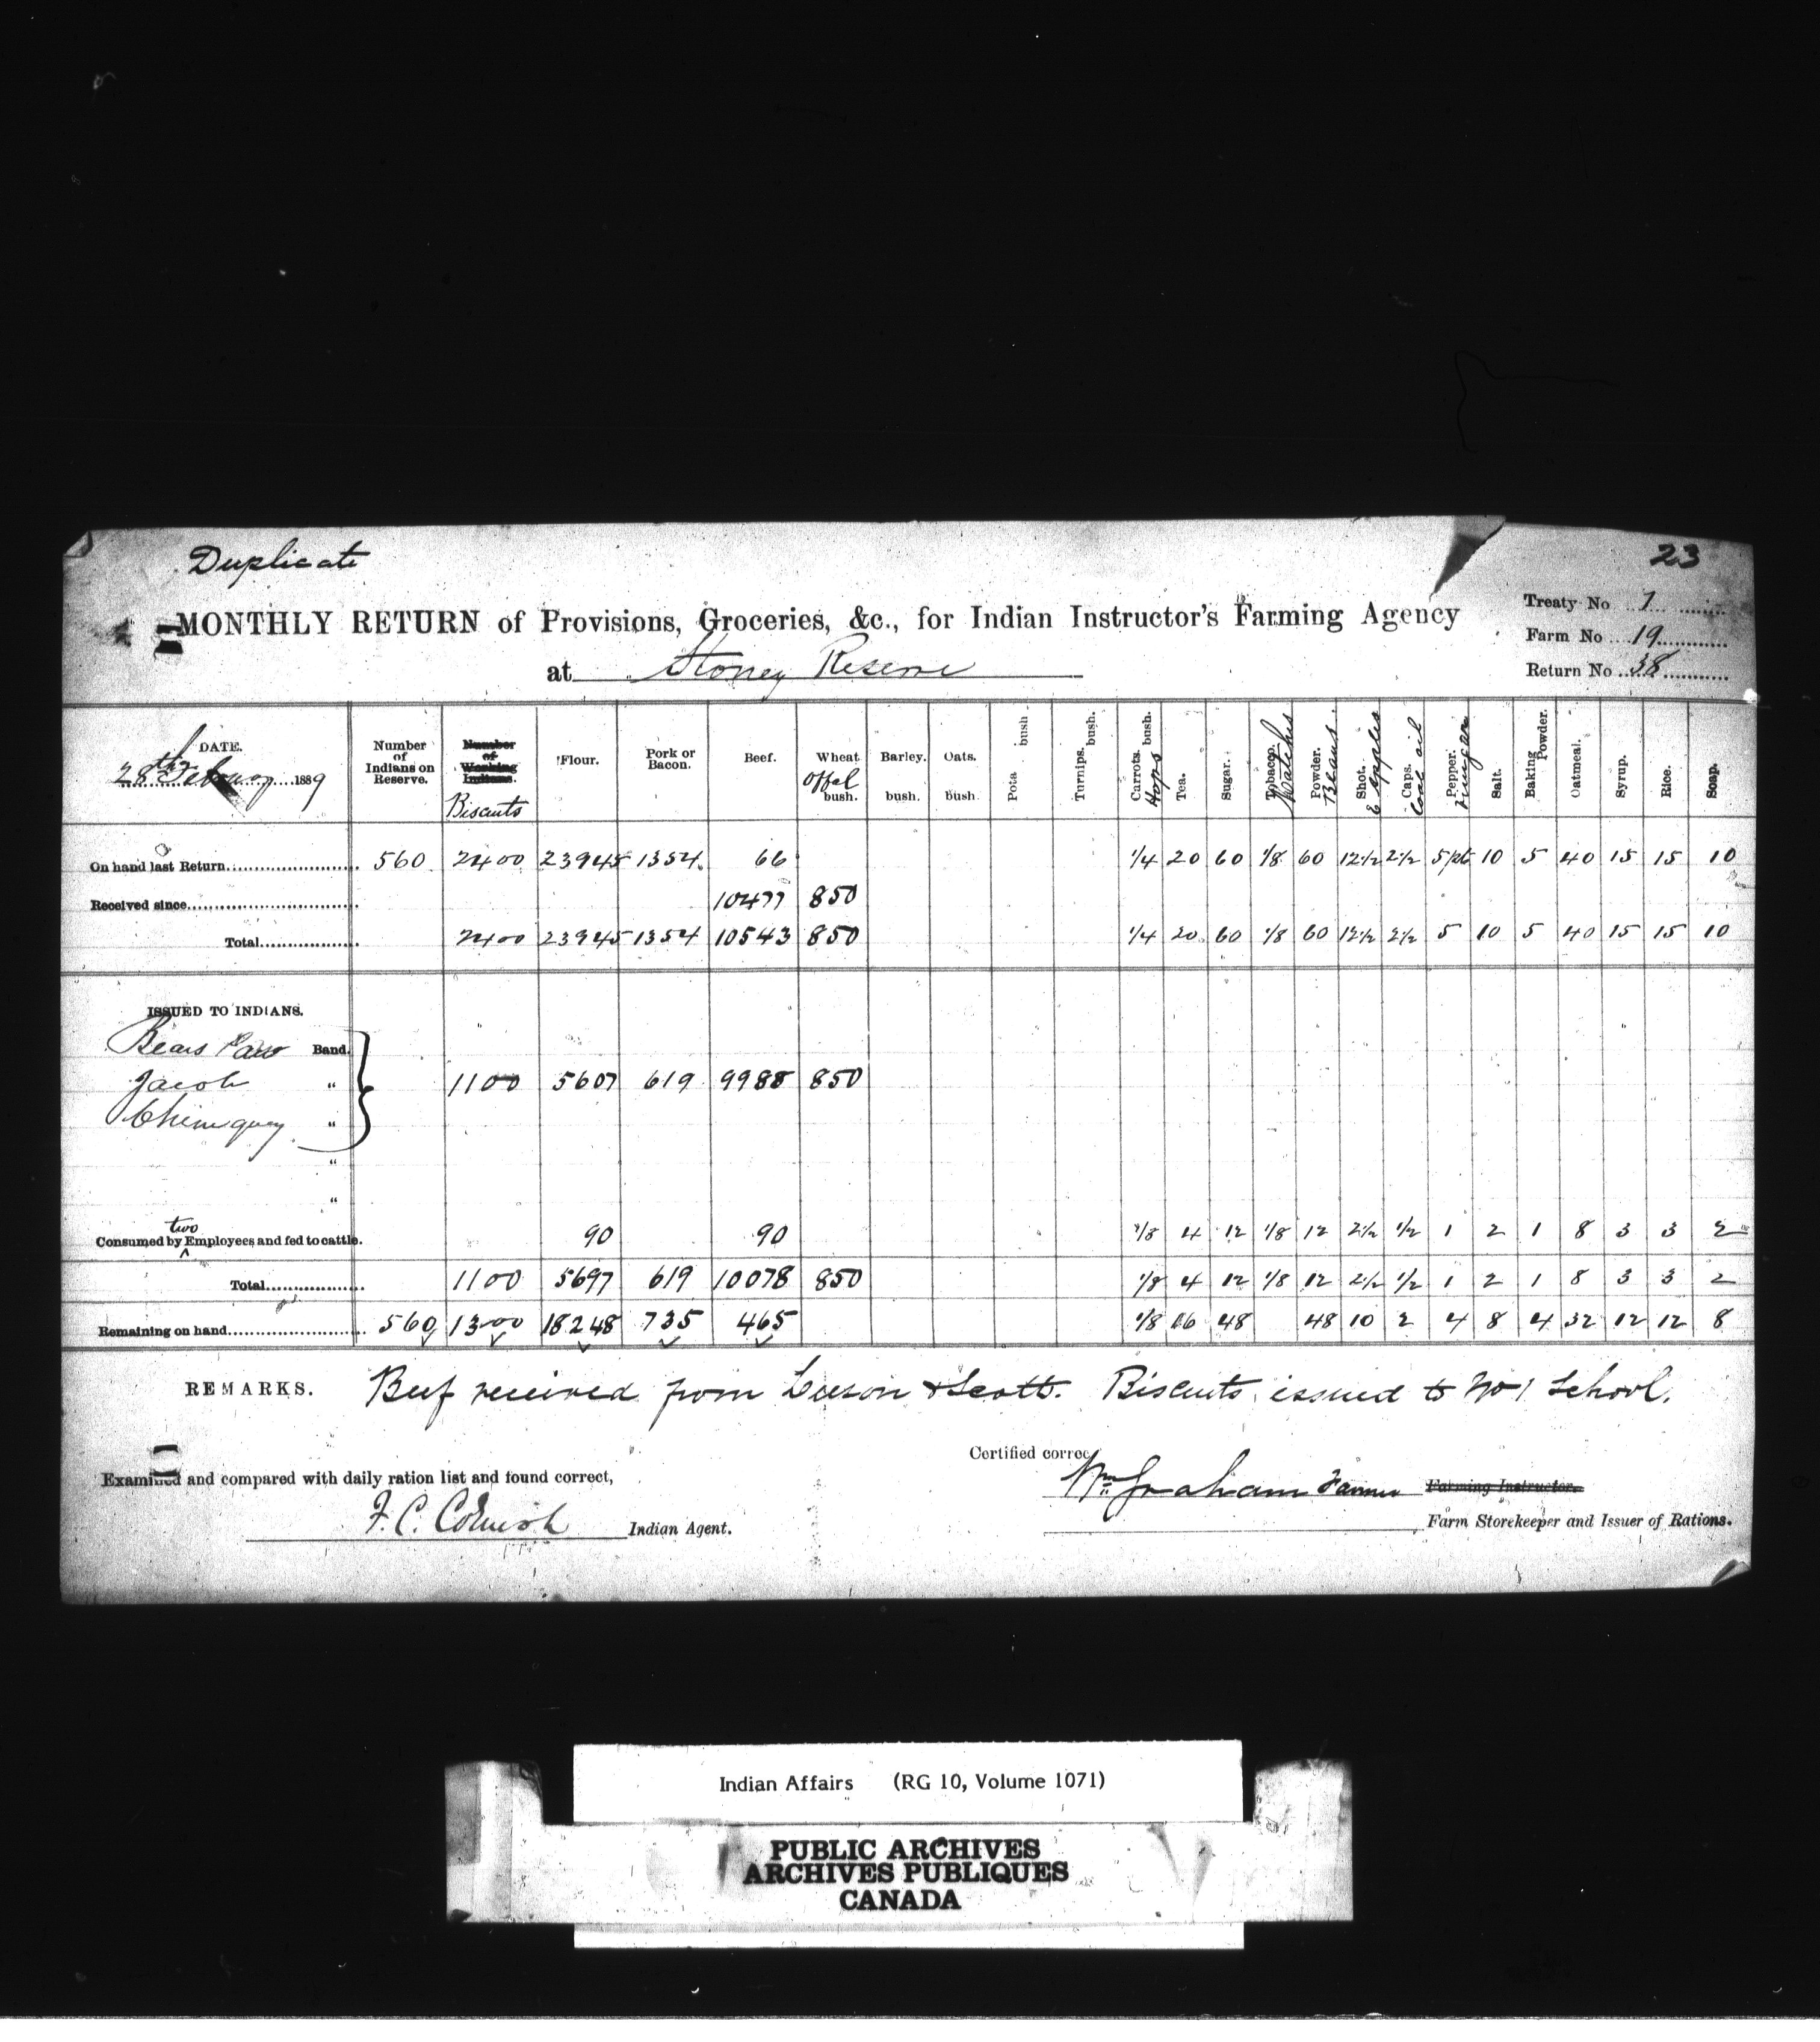 Duplicate
23
MONTHLY RETURN of Provisions, Groceries, &c., for Indian Instructor's Farming Agency
at Stoney Reserve
Treaty No 7
Farm No 19
Return No 38
DATE.
28th February 1889
Number of Indians on Reserve.
Number of Working Indians.
Biscuits
Flour.
Pork or Bacon.
Beef.
Wheat Offal bush.
Barley. bush.
Oats. bush.
Pota bush
Turnips. bush.
Carrots. bush. Hops
Tea.
Sugar.
Tobacco. Matches
Powder. Beans
Shot. E Apples
Caps. Coal oil
Pepper. Vinegar
Salt.
Baking Powder.
Oatmeal.
Syrup.
Rice.
Soap.
On hand last Return 560 2400 23945 1354 66 1/4 20 60 1/8 60 12 1/2 2 1/2 5 pts 10 5 40 15 15 10
Received since 10477 850
Total 2400 23945 1354 10543 850 1/4 20 60 1/8 60 12 1/2 2 1/2 5 10 5 40 15 15 10
ISSUED TO INDIANS.
Bears Paw Band.
Jacob " 1100 5607 619 9988 850
Chiniquay "
"
"
Consumed by two Employees and fed to cattle. 90 90 1/8 4 12 1/8 12 2 1/2 1/2 1 2 1 8 3 3 2
Total 1100 5697 619 10078 850 1/8 4 12 1/8 12 2 1/2 1/2 1 2 1 8 3 3 2
Remaining on hand 560 1300 18248 735 465 1/8 16 48 48 10 2 4 8 4 32 12 12 8
REMARKS. Beef received from Leeson & Scott. Biscuits issued to No 1 School.
Certified correc
Examined and compared with daily ration list and found correct,
Wm Graham Farmer Farming Instructor.
F. C. Cornish Indian Agent.
Farm Storekeeper and Issuer of Rations.
Indian Affairs (RG 10, Volume 1071)
PUBLIC ARCHIVES
ARCHIVES PUBLIQUES
CANADA